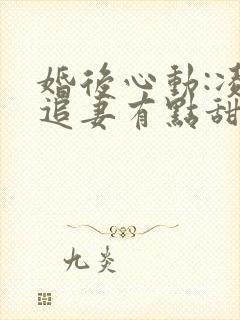 婚後心動:凌
追妻有點甜
九炎